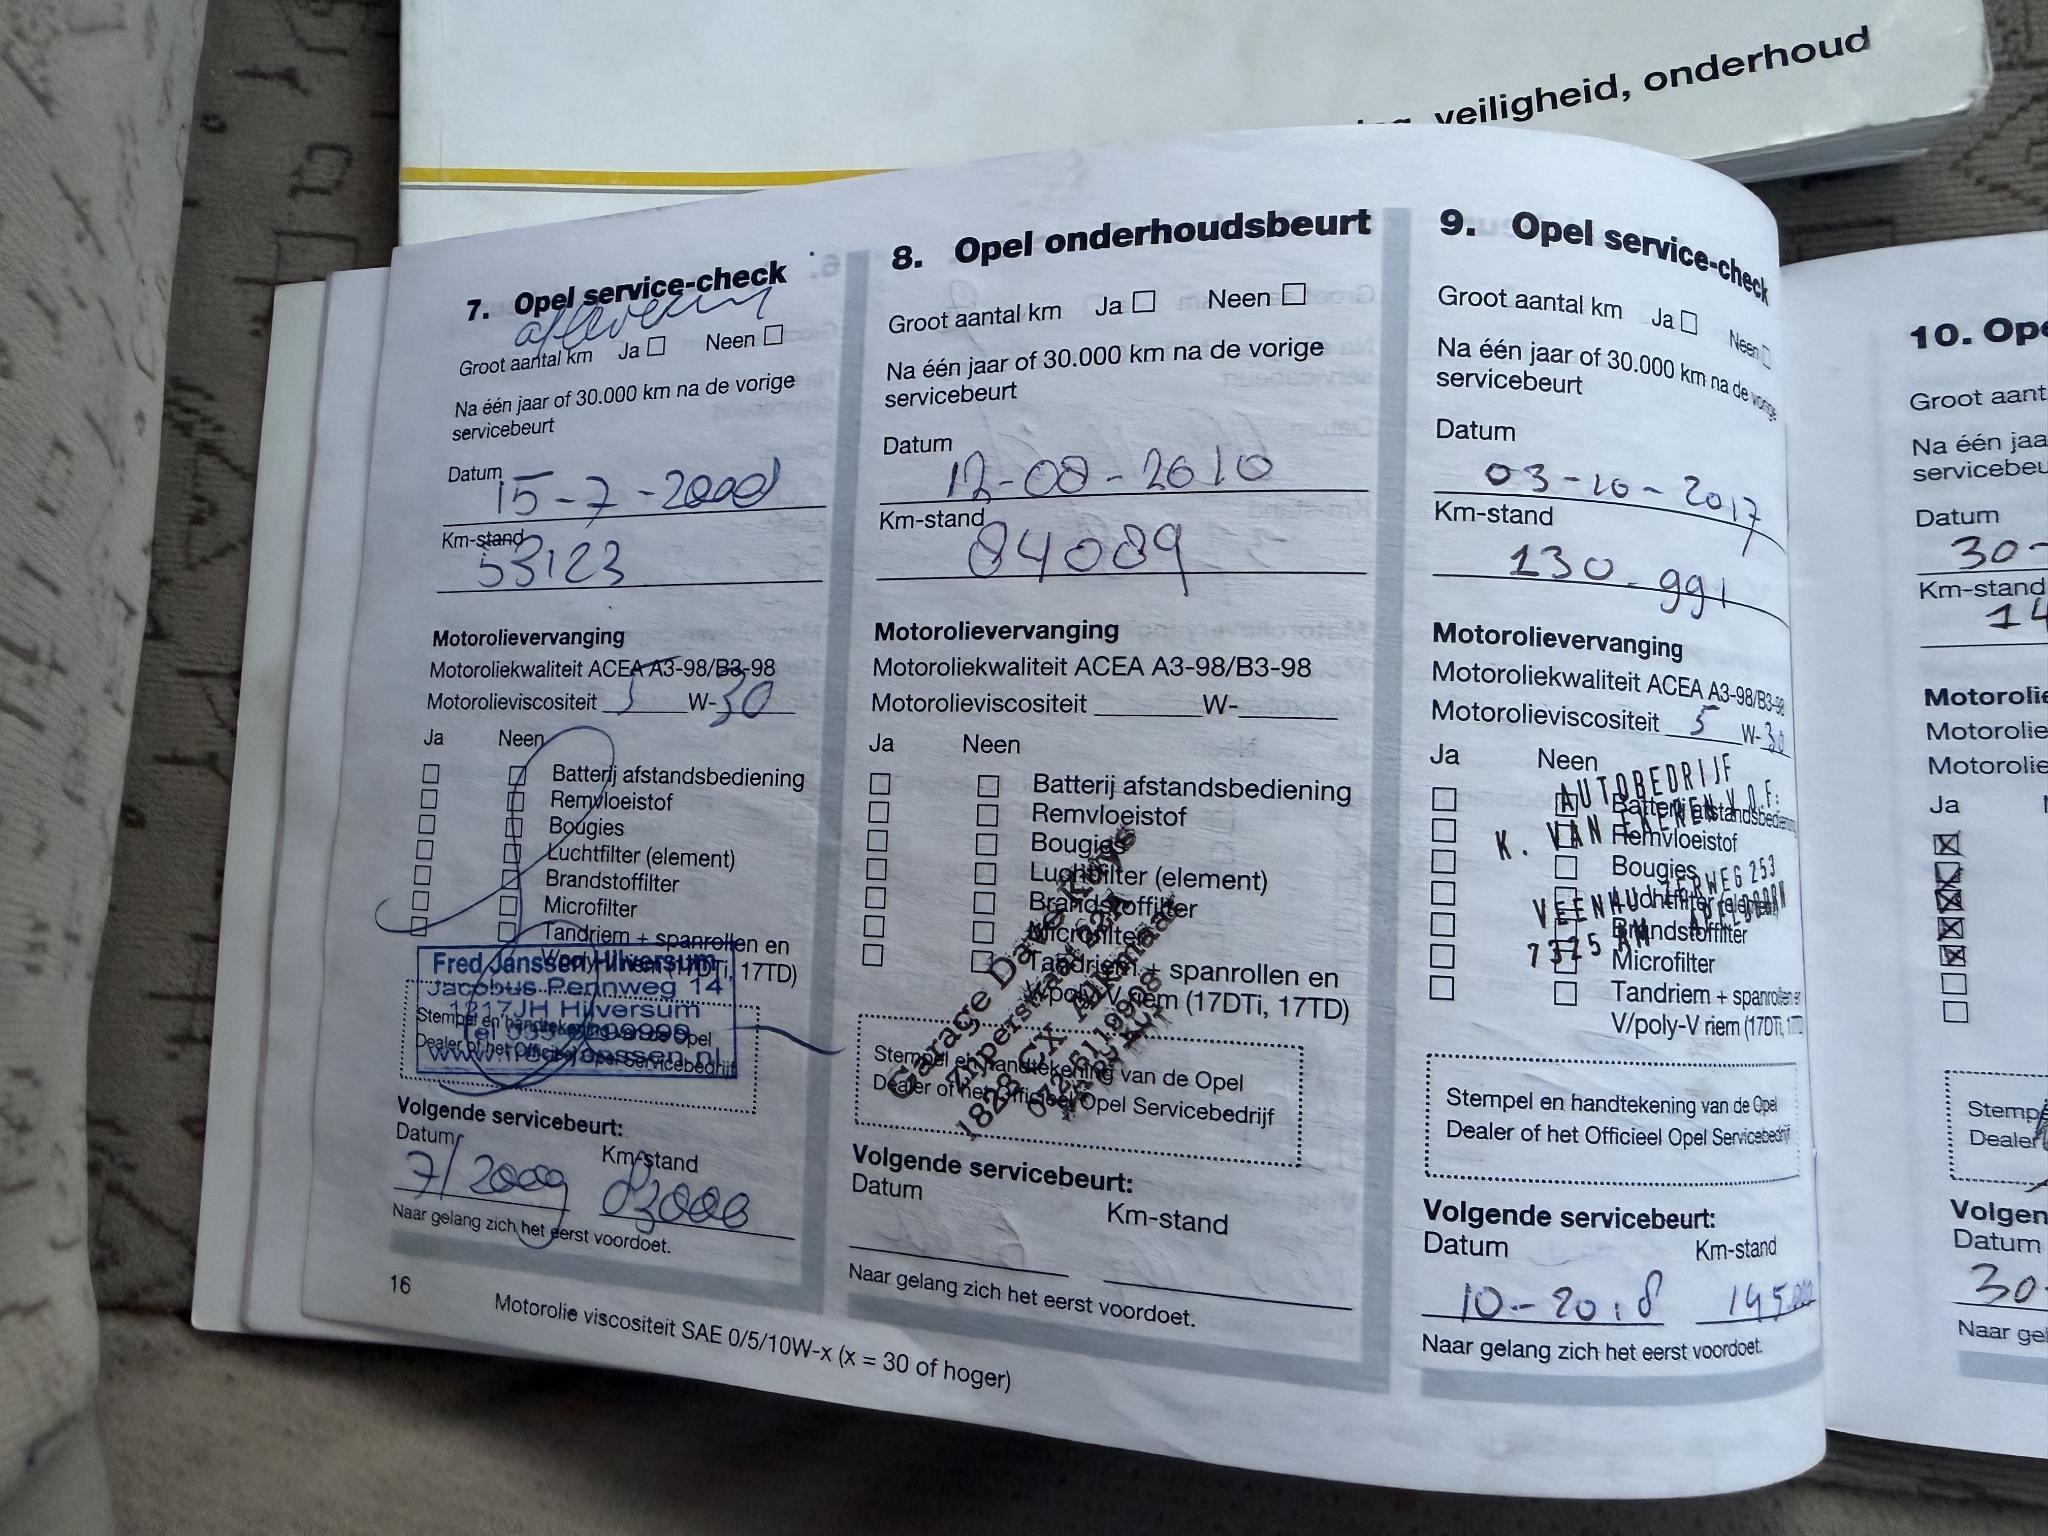 veiligheid, onderhoud
7. Opel service-check
Groot aantal km Ja Neen
Na één jaar of 30.000 km na de vorige
servicebeurt
Datum
15-7-2008
Km-stand
53123
Motorolievervanging
Motoroliekwaliteit ACEA A3-98/B3-98
Motorolieviscositeit 5 W-30
Ja Neen
Batterij afstandsbediening
Remvloeistof
Bougies
Luchtfilter (element)
Brandstoffilter
Microfilter
Tandriem + spanrollen en
V/poly-V riem (17DTi, 17TD)
Fred Janssen Hilversum
Jacobus Pennweg 14
1217JH Hilversum
Stempel en handtekening van de Opel
Dealer of het Officieel Opel Servicebedrijf
Volgende servicebeurt:
Datum Km-stand
7/2009 83000
Naar gelang zich het eerst voordoet.
16
Motorolie viscositeit SAE 0/5/10W-x (x = 30 of hoger)
8. Opel onderhoudsbeurt
Groot aantal km Ja Neen
Na één jaar of 30.000 km na de vorige
servicebeurt
Datum
12-08-2010
Km-stand
84089
Motorolievervanging
Motoroliekwaliteit ACEA A3-98/B3-98
Motorolieviscositeit W-
Ja Neen
Batterij afstandsbediening
Remvloeistof
Bougies
Luchtfilter (element)
Brandstoffilter
Microfilter
Tandriem + spanrollen en
V/poly-V riem (17DTi, 17TD)
Garage Dave
1828 CX Alkmaar
072 5119908
Stempel en handtekening van de Opel
Dealer of het Officieel Opel Servicebedrijf
Volgende servicebeurt:
Datum Km-stand
Naar gelang zich het eerst voordoet.
9. Opel service-check
Groot aantal km Ja Neen
Na één jaar of 30.000 km na de vorige
servicebeurt
Datum
03-10-2017
Km-stand
130.991
Motorolievervanging
Motoroliekwaliteit ACEA A3-98/B3-98
Motorolieviscositeit 5 W-30
Ja Neen
AUTOBEDRIJF
K. VAN V.O.F.
253
7325 AM APELDOORN
Batterij afstandsbediening
Remvloeistof
Bougies
Luchtfilter (element)
Brandstoffilter
Microfilter
Tandriem + spanrollen en
V/poly-V riem (17DTi, 17TD
Stempel en handtekening van de Opel
Dealer of het Officieel Opel Servicebedrijf
Volgende servicebeurt:
Datum Km-stand
10-2018 145.000
Naar gelang zich het eerst voordoet.
10. Ope
Groot aant
Na één jaa
servicebeu
Datum
30-
Km-stand
14
Motorolie
Motorolie
Motorolie
Ja
Stemp
Dealer
Volgen
Datum
30-
Naar gel